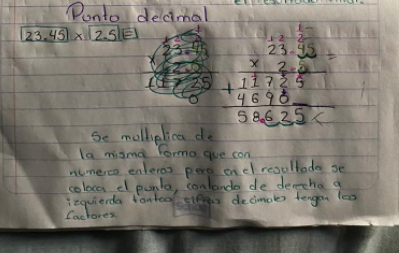 Punto decimal
23.45 x 2.5 =
23.45
x 2.5
11725
+ 4690
58.625
Se multiplica de
la misma forma que con
numeros enteros pero en el resultado se
coloca el punto, contando de derecha a
izquierda tantas cifras decimales tengan los
factores